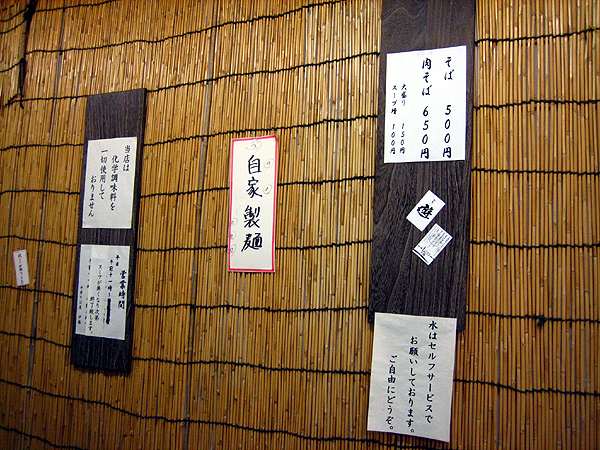 そば 500円
肉そば 650円
大盛り 150円
スープ増 100円
遊
水はセルフサービスで
お願いしております。
ご自由にどうぞ。
自家製麺
当店は
化学調味料を
一切使用して
おりません
営業時間
スープが無くなり次第
終了致します。